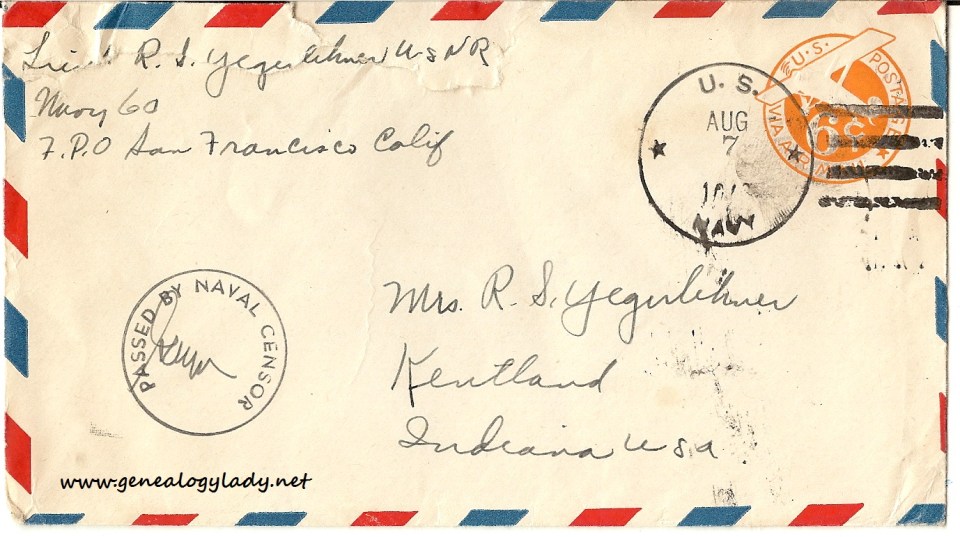 Lieut R. S. Yegerlehner USNR
Navy 60
F.P.O San Francisco Calif
U. S.
AUG
7
NAVY
U.S. POSTAGE
6¢
VIA AIR MAIL
Mrs. R. S. Yegerlehner
Kentland
Indiana USA
PASSED BY NAVAL CENSOR
www.genealogylady.net